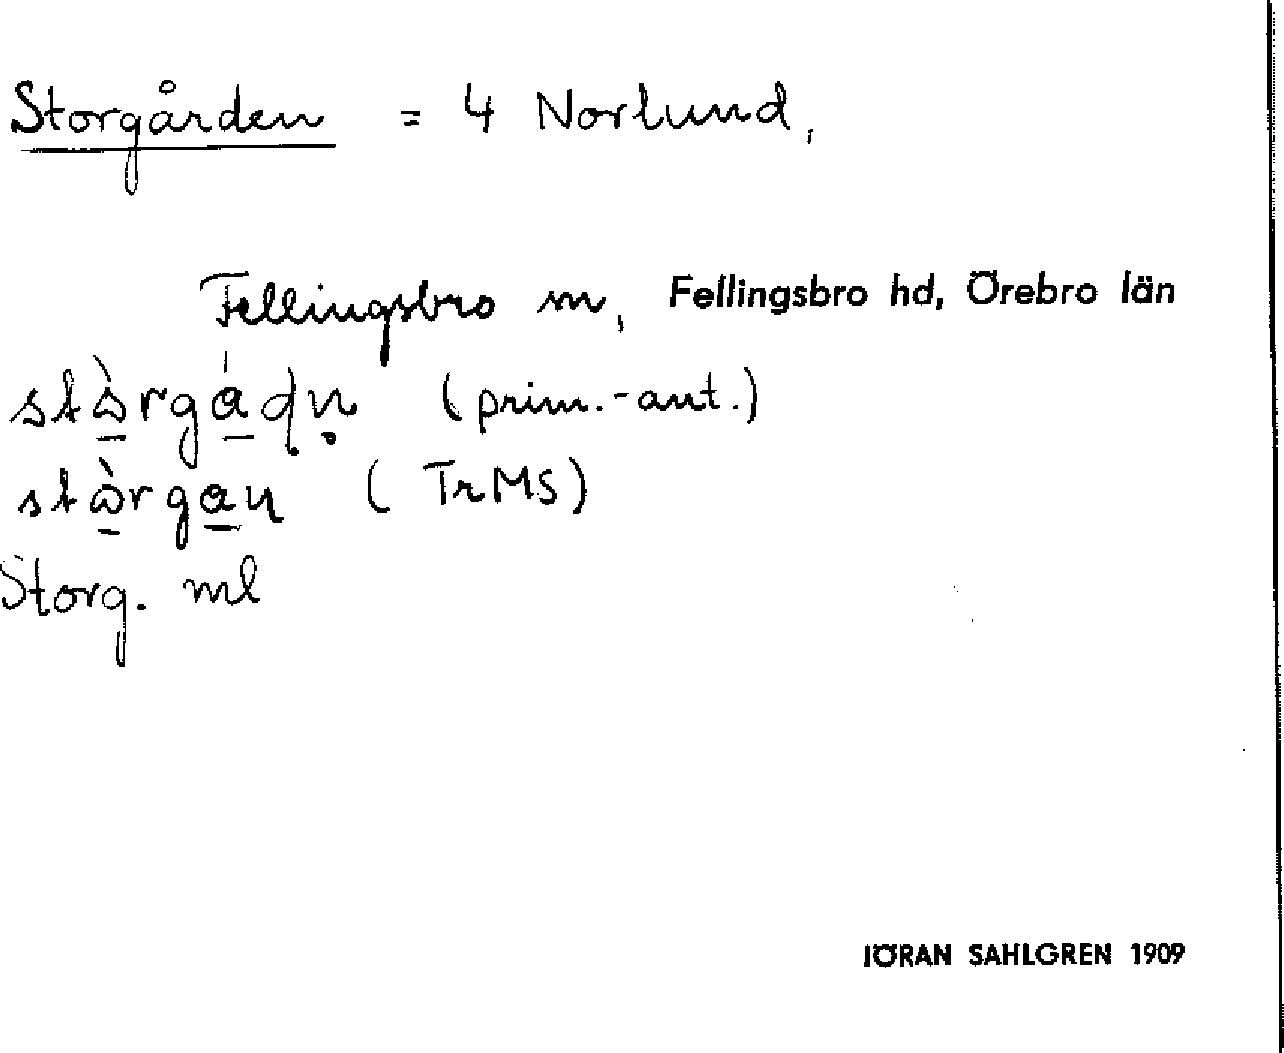 Storgården = 4 Norlund,
Fellingsbro sn, Fellingsbro hd, Örebro län
(prim.-ant.)
(TrMS)
Storg. ml
JÖRAN SAHLGREN 1909